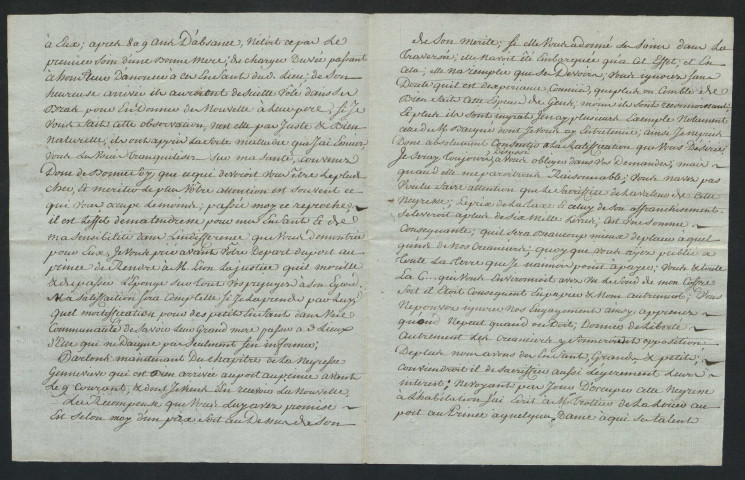 à Eux; apres 8 a 9 ans D'absance, N'étoit ce par le
premier Soin d'une Bonne Mere; de charger Dusée passant
à hon fleur D'anoncé a ces Enfant du d. Lieu; de Son
heureuse arrivée ils auroient de Suitte Volé dans Ses
Bras pour lui Donner des Nouvelle à leur pere, Si Je
Vous fait cette observation, Nest elle pas Juste & Bien
Naturelle; ils ont appris La forte maladie que J'ai Essuié
Vous les Veriez tranquilisés Sur ma Santé, convenez
Donc de Bonne foy que ce qui devroit vous Etre le plus
cher, Et méritié le plus Votre attention est Souvent ce
qui vous occupe le moins; passée moy ce reproche;
il est l'effet de ma tendresse pour mes Enfant Et de
ma Sensibilité dans l'indifférence que vous demontrée
pour Eux, Je vous prie avant Votre Depart du port au
prince de Rendre à M. Lion la justice qu'il mérite
& de passer l'Eponge Sur tout vos prejugés à Son Egard.
Ma Satisfaction Sera Complette Si Je l'aprend par luy;
quel mortification pour des petits Enfant dans Une
Communauté de Savoir leur Grand mere passer a 3 Lieux
d'Eux qui ne daigne pas Seulement S'en informer;
Parlons maintenant Du chapitre de la Negresse
Geneviève qui est D en arrivée au port au prince avant
le 9 Courant, & dont Je viens d'en recevoir la Nouvelle,
La Recompense que vous luy avez promise
Est Selon moy d'un prix Fort au Dessus de Son
de Son Merite; Si elle vous a donné des Soins dans la
Traversée; elle n'avoit été Embarquée qu'à cet Effet, et En
cela; elle n'a remplie que Ses Devoirs, vous ignorez Sans
Doute quil est d'experiance Connüe; que plus on Comble de
Bien fait cette Espece de Gens, moins ils Sont reconnoissant;
Et plus ils Sont ingrat J'en ay plusieurs Exemple Notament
celui de M. Baugné dont Je vous ay Entretenüe; ainsi Je regrete
Donc absolument Consentir a La Satisfaction que vous Desiré
Je Seray toujours disposé à vous obliger dans vos Demandes, mais
quand elle me paroitront Raisonnable; Vous n'avez pas
Voulu faire attention que le Sacrifice de la valeur de cette
Negresse; Le prix de la Taxe & celuy de Son affranchissement
S'eleveroit a plus de Six Mille Livres; cest une Somme
Consequante; qui Sera Beaucoup mieux deplacé a quel
qu'un de nos Creancier; quoy que vous ayez publié a
toute la Terre que Je n'aimois point à payer; vous & toute
La C.e qui vous Environnoit avez Vu le fond de mon Coffre
Soit il Etoit Consequent En papier & Non autrement; Vous
Ne pouvez ignorer Nos Engagement ainsy apprenez
qu'on Ne peut quand on Doit, Donner des Liberté
Autrement des creanciers y formeroient opposition
De plus nous avons des Enfant, Grands & petits;
conviendroit il de Sacrifier aussi Legerement leurs
interest; Ne voyant pas Jour D'occuper cette Negresse
à L'habitation J'ai Ecrit à M. Trottier de la Loüer au
port au Prince a quelque Dame a qui Ses talent